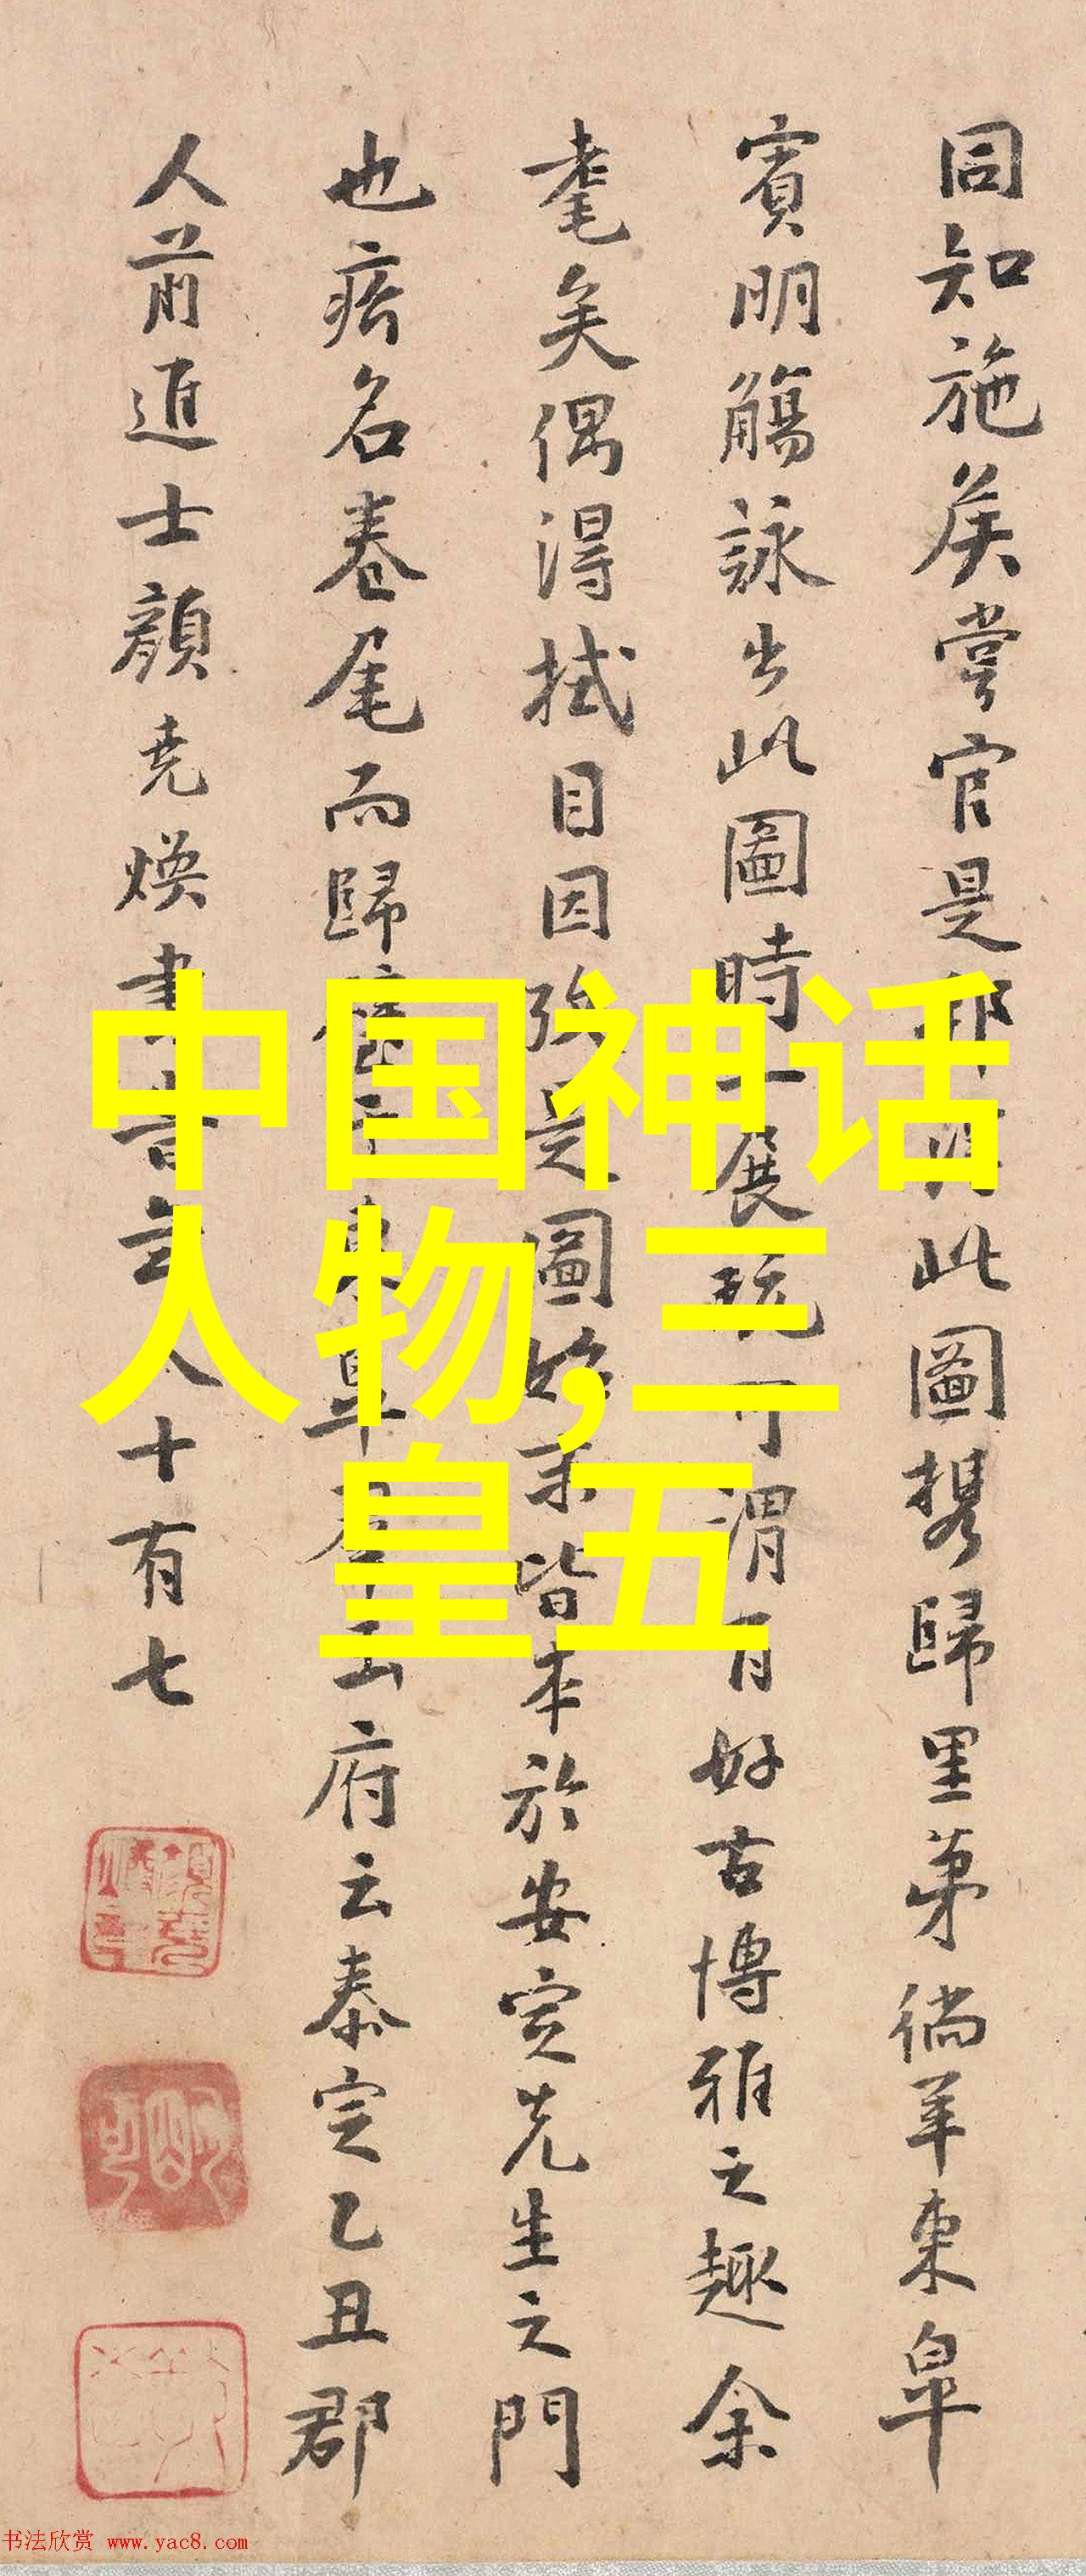 同知施侯嘗官是郡得此圖携歸里第徜羊東皐
賓朋觴詠出此圖時一展玩可謂有好古博雅之趣余
耄矣偶得拭目因強是圖始末皆本於安定先生之門
也痞名卷尾而歸東皐君玉府云泰定乙丑郡
人前進士顏堯煥書書玄十有七
中国神话
人物,三
皇五
书法欣赏 www.yac8.com